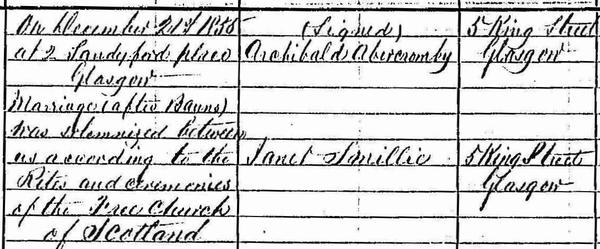 On December 21st 1855
at 2 Sandyford place
Glasgow
Marriage (after Banns)
was solemnized between
us according to the
Rites and ceremonies
of the Free Church
of Scotland
(Signed)
Archibald Abercromby
Janet Smillie
5 King Street
Glasgow
5 King Street
Glasgow